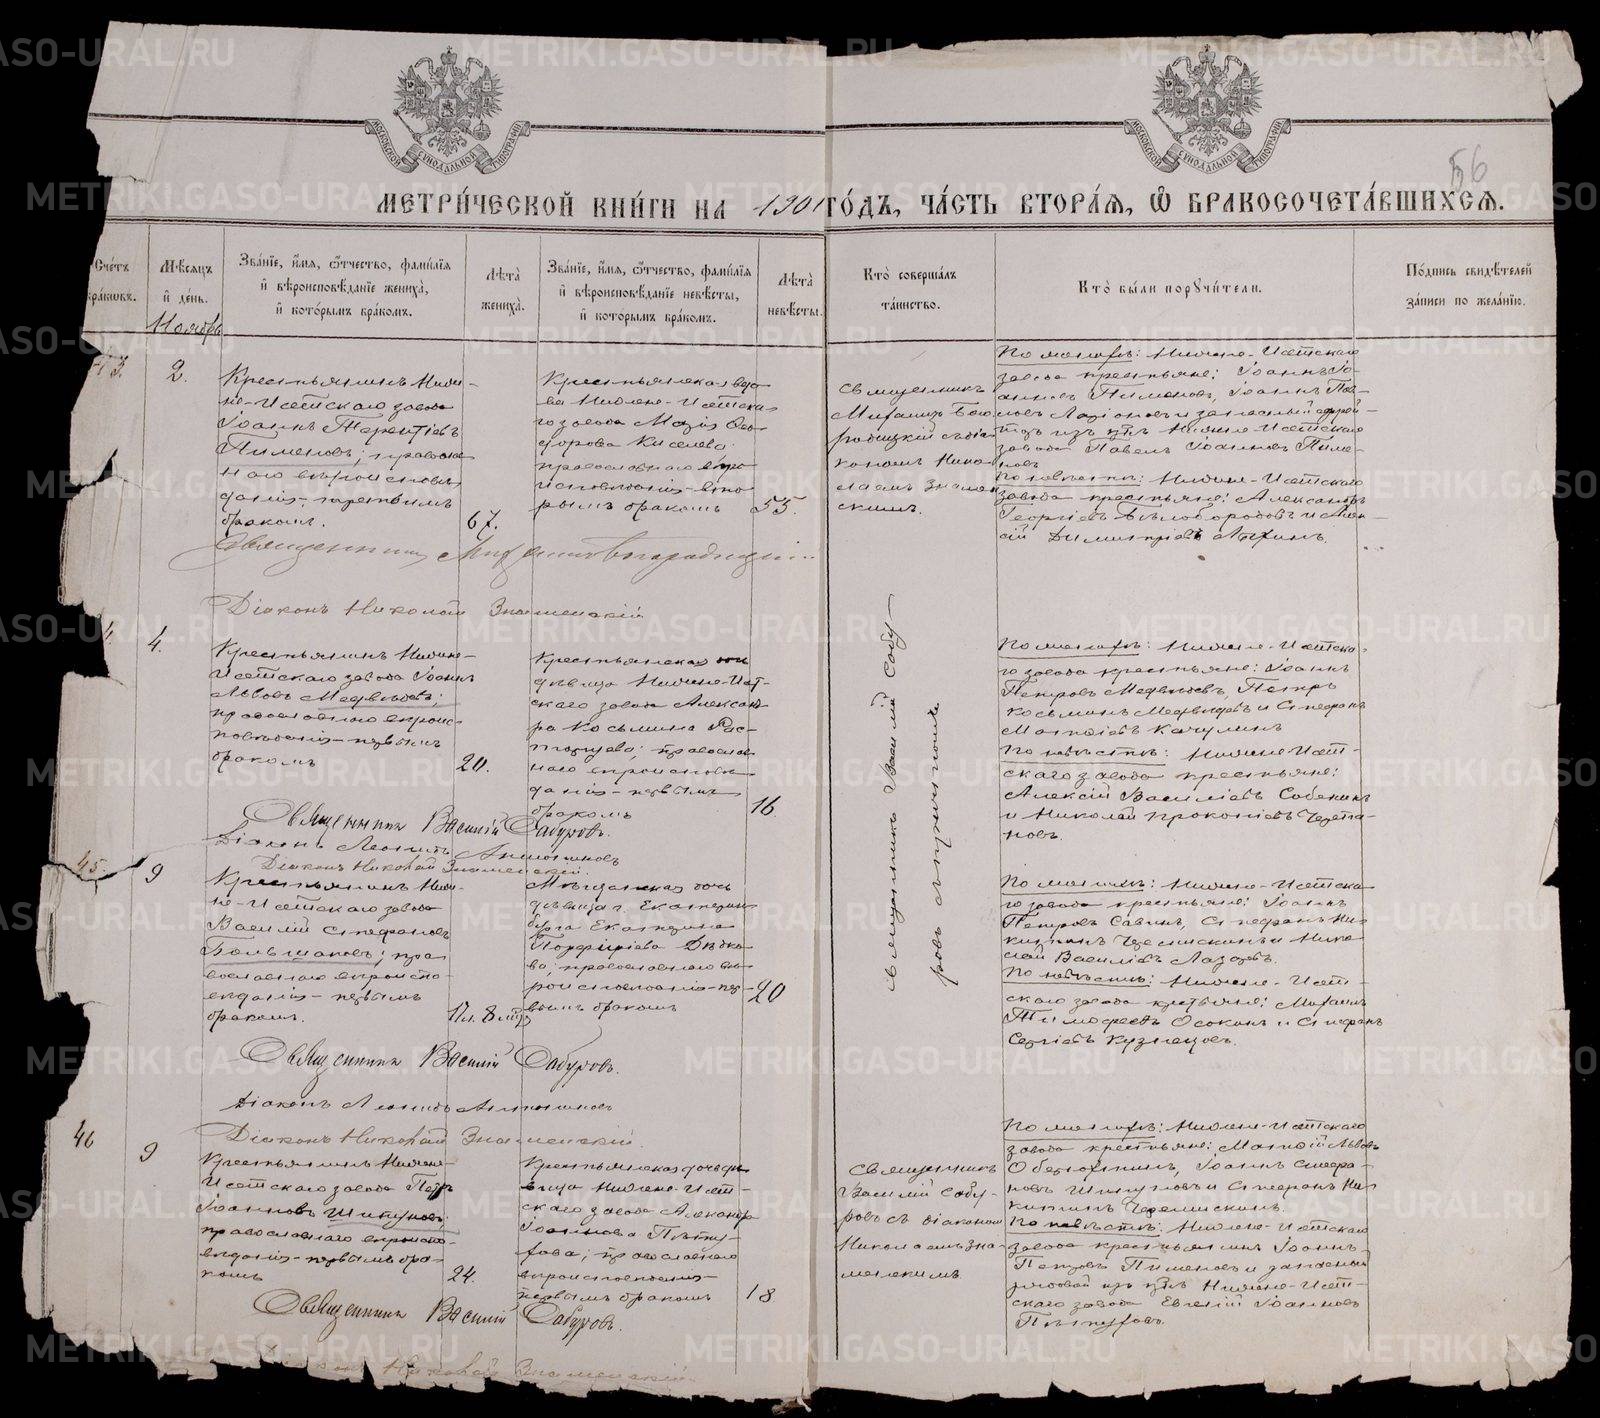 МЕТРИ́ЧЕСКОЙ КНИ́ГИ НА 1901 ГО́ДЪ, ЧА́СТЬ ВТОРА́Я, Ѡ БРАКОСОЧЕТА́ВШИХСЯ.
56
МОСКОВСКОЙ СУНОДАЛЬНОЙ ТИПОГРАФІИ
МОСКОВСКОЙ СУНОДАЛЬНОЙ ТИПОГРАФІИ
Счетъ браковъ.
Мѣсяцъ
и день.
Ноябрь
Званіе, имя, отчество, фамилія
и вѣроисповѣданіе жениха,
и которымъ бракомъ.
Лѣта
жениха.
Званіе, имя, отчество, фамилія
и вѣроисповѣданіе невѣсты,
и которымъ бракомъ.
Лѣта
невѣсты.
Кто совершалъ
таинство.
Кто были поручители.
Подпись свидѣтелей
записи по желанію.
2.
Крестьянинъ Ниж-
не-Исетскаго завода
Іоаннъ Терентіевъ
Пименовъ; православ
наго вѣроисповѣ
данія, третьимъ
бракомъ.
67.
Крестьянская вдо
ва Нижне-Исетска
го завода Марія Ѳео
дорова Киселева
православнаго вѣро
исповѣданія - вто
рымъ бракомъ
55.
Священникъ
Михаилъ Бого
родицкій съ діа
кономъ Нико
лаемъ Знамен
скимъ.
По женихѣ: Нижне-Исетскаго
завода крестьяне: Іоаннъ Іо-
анновъ Пименовъ, Іоаннъ Пав-
завода Павелъ Іоанновъ Пиме-
новъ
По невѣстѣ: Нижне-Исетскаго
завода крестьяне: Александръ
Георгіевъ Бѣлобородовъ и Алек-
сій Димитріевъ
Священникъ Михаилъ Богородицкій
Діаконъ Николай Знаменскій
4.
Крестьянинъ Нижне-
Исетскаго завода Іоаннъ
Львовъ Медвѣдевъ;
православнаго вѣроис-
повѣданія - первымъ
бракомъ
20.
Крестьянская дочь
дѣвица Нижне-Исет-
скаго завода Александ-
ра Косьмина Рас-
торгуева; православ
наго вѣроисповѣ
данія - первымъ
бракомъ
16
Священникъ Василій Сабу-
ровъ съ причтомъ
По женихѣ: Нижне-Исетска-
го завода крестьяне: Іоаннъ
Петровъ Медвѣдевъ, Петръ
Косьминъ Медвѣдевъ и Стефанъ
По невѣстѣ: Нижне-Исет-
скаго завода крестьяне:
Алексій Василіевъ Собенинъ
и Николай Прокопіевъ Черепа-
новъ.
Священникъ Василій Сабуровъ.
Діаконъ Леонидъ
Діаконъ Николай Знаменскій.
45
9
Крестьянинъ Ниж-
не-Исетскаго завода
Василій Стефановъ
Большаковъ; пра
вославнаго вѣроиспо-
вѣданія - первымъ
бракомъ.
17 л. 8 мѣс
Мѣщанская дочь
дѣвица г. Екатерин
бурга Екатерина
Порфиріева Дѣдко-
ва; православнаго вѣ-
роисповѣданія - пер-
вымъ бракомъ
20
По женихѣ: Нижне-Исетска-
го завода крестьяне: Іоаннъ
Петровъ Савинъ, Стефанъ Ни-
китинъ Черемискинъ и Нико-
лай Василіевъ Лазаревъ.
По невѣстѣ: Нижне-Исет-
скаго завода крестьяне: Михаилъ
Тимофеевъ Осокинъ и Стефанъ
Сергіевъ Кузнецовъ.
Священникъ Василій Сабуровъ.
Діаконъ Леонидъ
Діаконъ Николай Знаменскій.
46
9
Крестьянинъ Нижне-
Исетскаго завода Петръ
Іоанновъ Шипуновъ;
православнаго вѣроиспо-
вѣданія - первымъ бра-
комъ
24.
Крестьянская дочь дѣ-
вица Нижне-Исет-
скаго завода Александра
Іоаннова
православнаго
вѣроисповѣданія -
первымъ бракомъ
18
Священникъ
Василій Сабу-
ровъ съ діакономъ
Николаемъ Зна-
менскимъ
По женихѣ: Нижне-Исетскаго
завода крестьяне: Матѳій Львовъ
Обвинцевъ, Іоаннъ Стефа-
новъ Шипуновъ и Стефанъ Ни-
китинъ Черемискинъ.
По невѣстѣ: Нижне-Исетскаго
завода крестьянинъ Іоаннъ
Петровъ Пименовъ и запасный
рядовой изъ кр. Нижне-Исет-
скаго завода Евгеній Іоанновъ
Священникъ Василій Сабуровъ.
Діаконъ Николай Знаменскій
METRIKI.GASO-URAL.RU